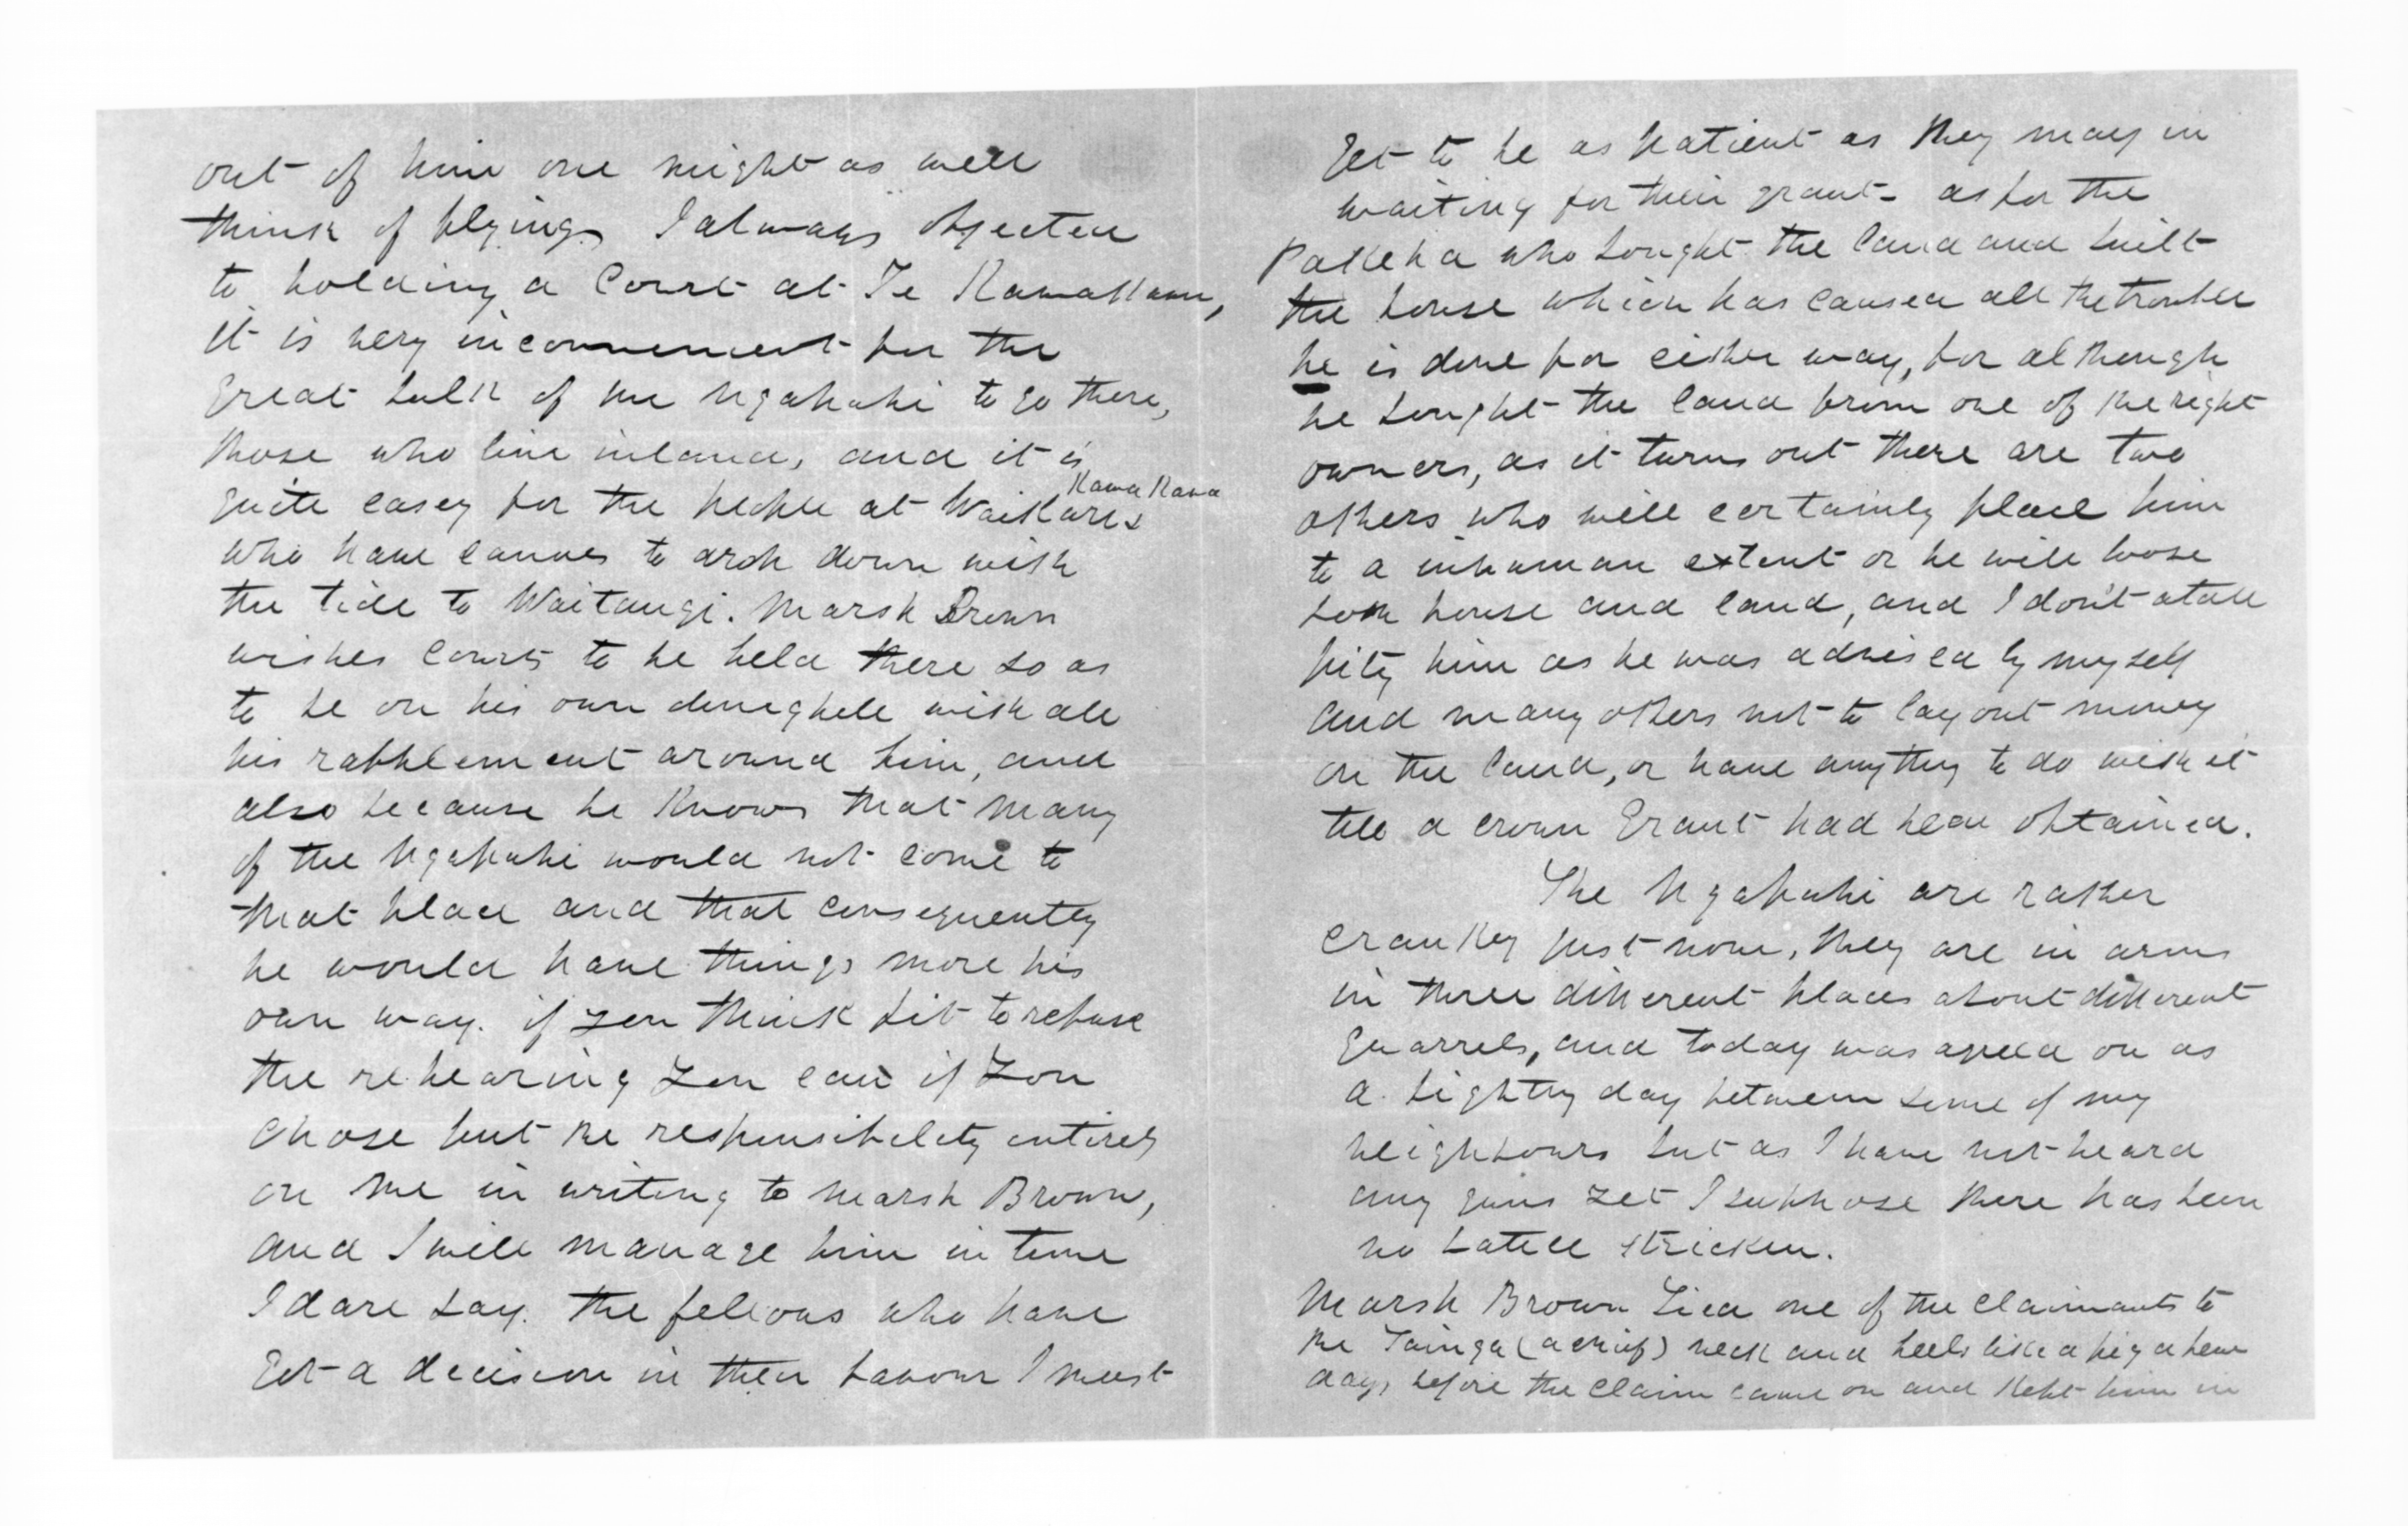 out of him one might as well
think of flying. I always objected
to holding a Court at Te Kawakawa,
it is very inconvenient for the
great bulk of the Ngapuhi to go there,
those who live inland, and it is
Kawa Kawa
quite easey for the people at Waikare &
who have canoes to drop down with
the tide to Waitangi. Marsh Brown
wishes Courts to be held there so as
to be on his own dunghill with all
his rabblement around him, and
also because he knows that many
of the Ngapuhi would not come to
that place and that consequently
he would have things more his
own way. if you think fit to refuse
the rehearing you can if you
chose put the responsibility entirely
on me in writing to Marsh Brown,
and I will manage him in time
I dare say. the fellows who have
got a decision in their favour I must
get to be as patient as they may in
waiting for their grant - as for the
Pakeha who bought the land and built
the house which has caused all the trouble
he is done for either way, for although
he bought the land from one of the right
owners, as it turns out there are two
others who will certainly place him
to a inhuman extent or he will loose
both house and land, and I don't atall
pity him as he was advised by myself
and many others not to lay out money
on the land, or have anything to do with it
till a crown Grant had been obtained.
The Ngapuhi are rather
crankey just now, they are in arms
in three different places about different
quarrels, and today was agreed on as
a fighting day between some of my
neighbours but as I have not heard
any guns yet I suppose there has been
no batell stricken.
Marsh Brown tied one of the claimants to
the Tainga (a chief) neck and heels like a pig a few
days before the claim came on and kept him in